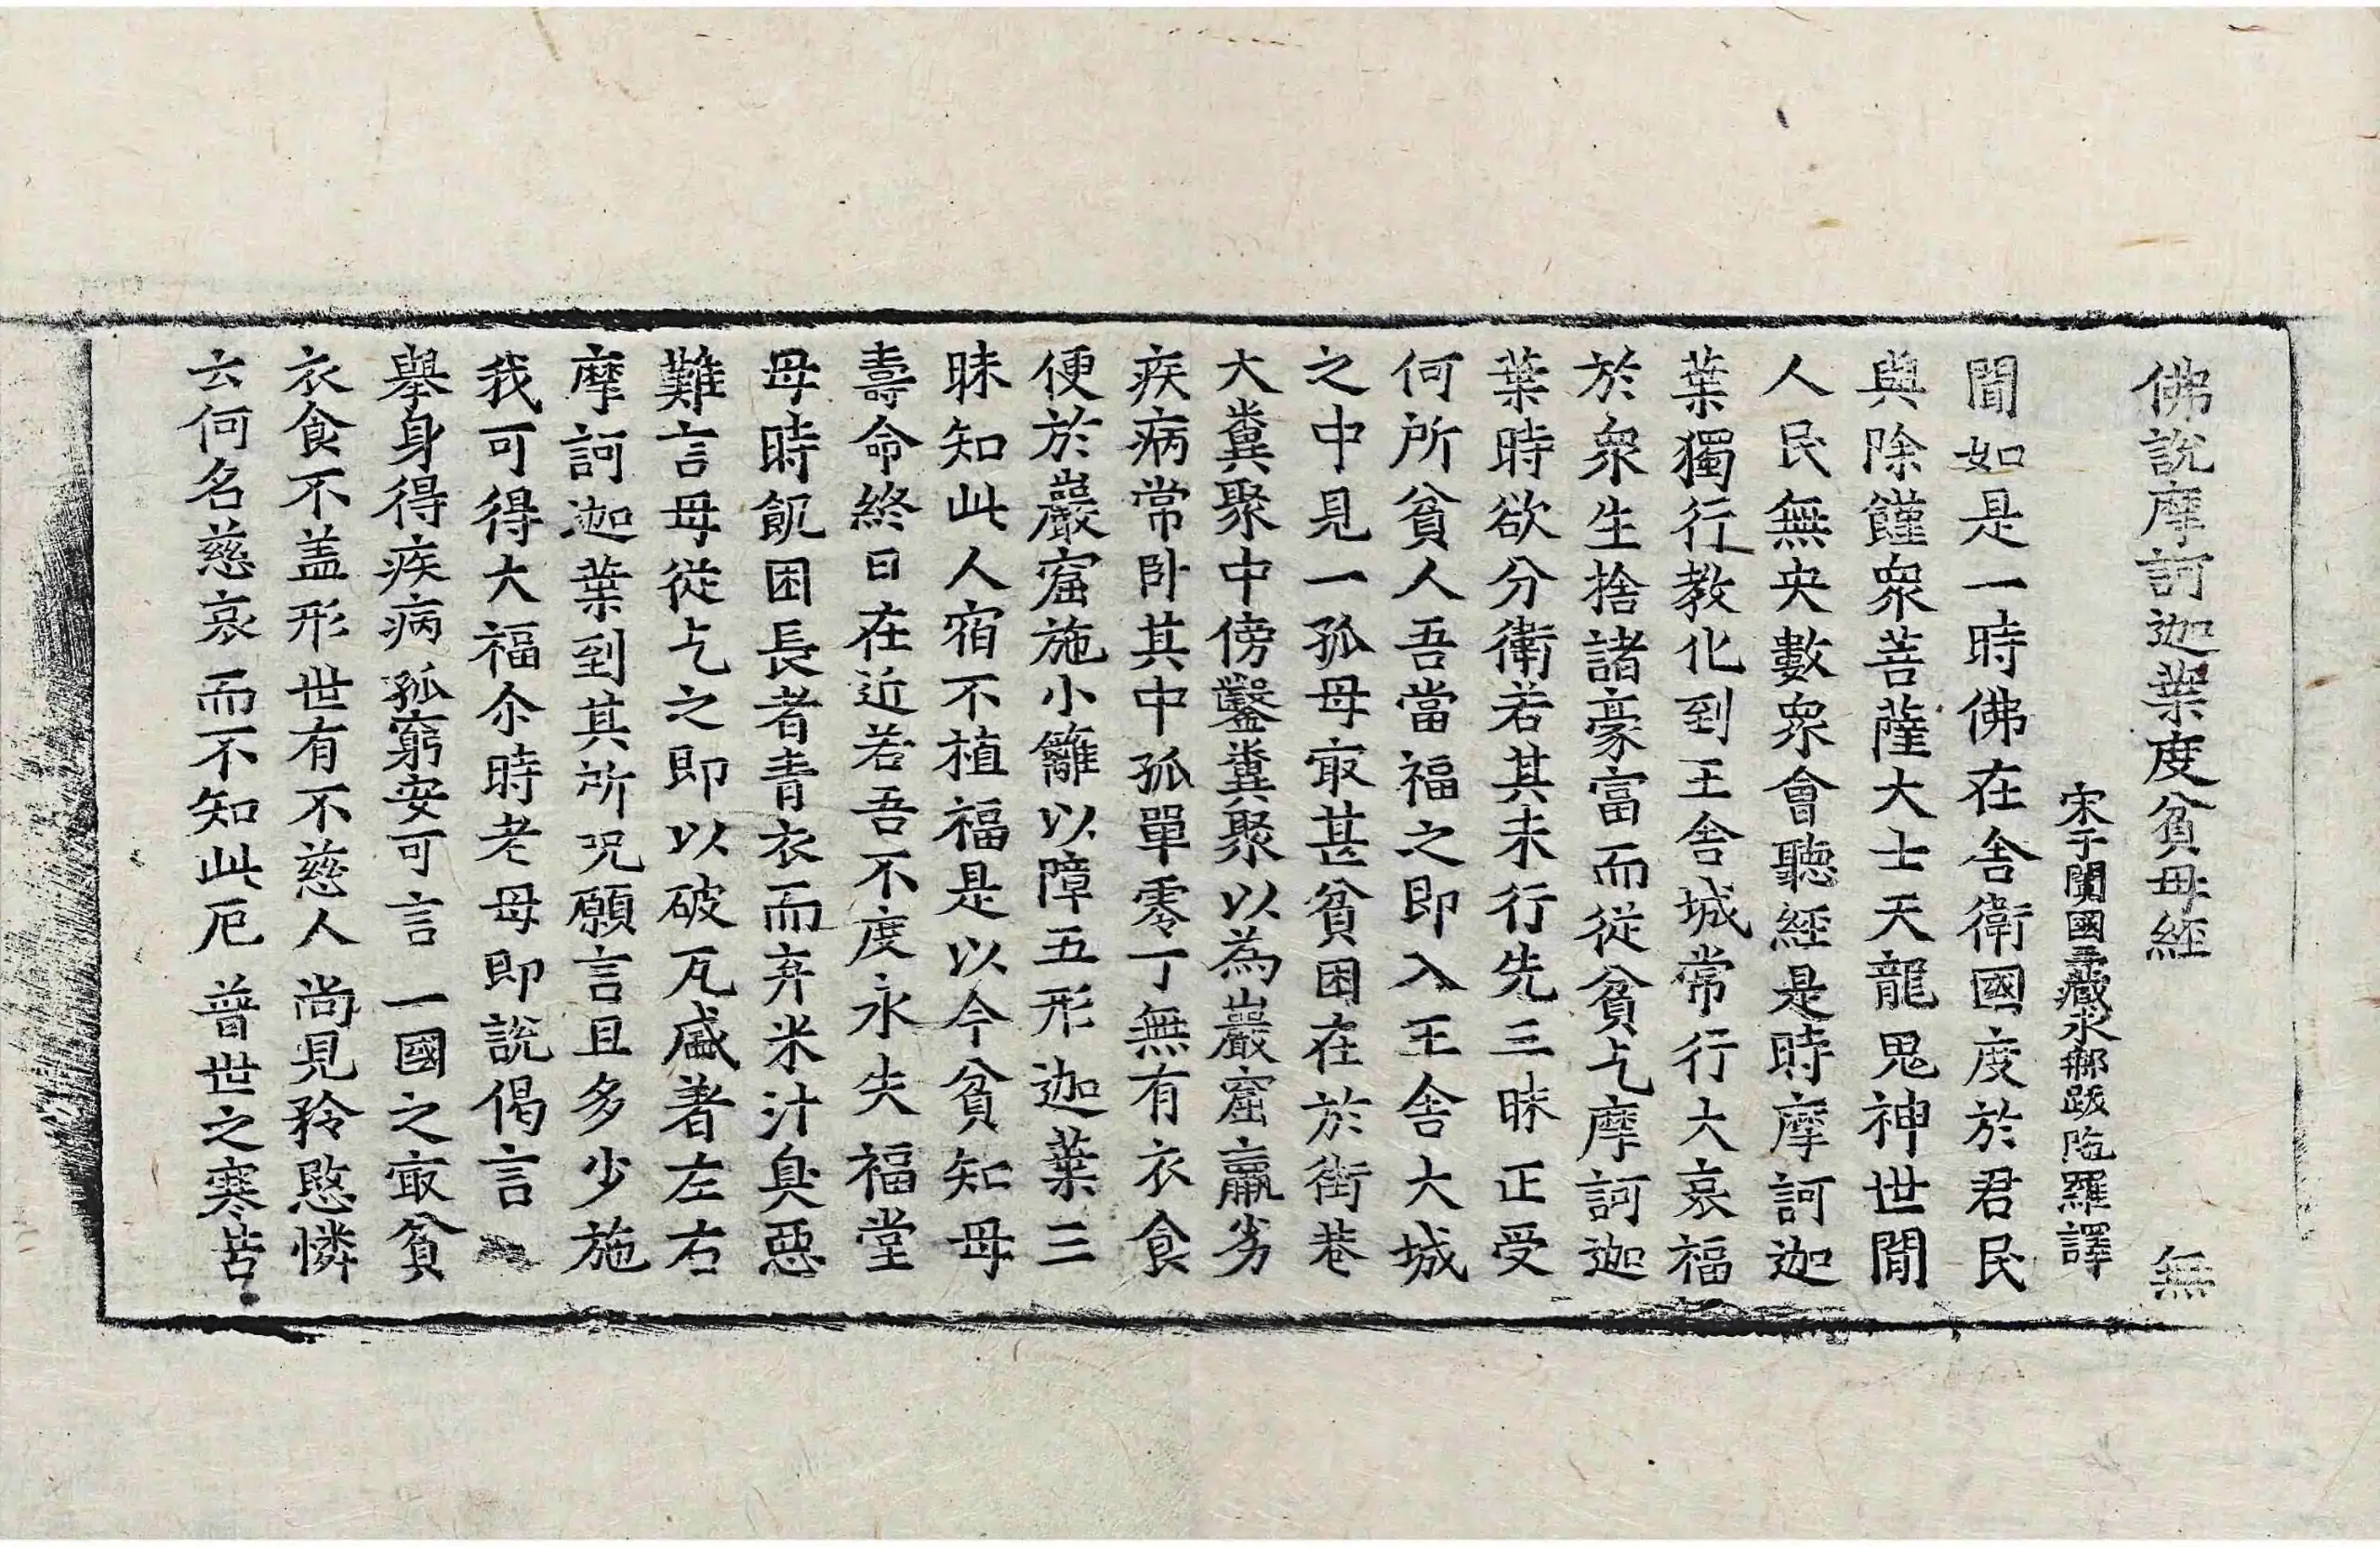 佛說摩訶迦葉度貧母經　無
宋于闐國三藏求那跋陁羅譯
聞如是一時佛在舍衛國度於君民
與除饉衆菩薩大士天龍鬼神世閒
人民無央數衆會聽經是時摩訶迦
葉獨行教化到王舍城常行大哀福
於衆生捨諸豪富而從貧乞摩訶迦
葉時欲分衛若其未行先三昧正受
何所貧人吾當福之即入王舍大城
之中見一孤母㝡甚貧困在於街巷
大糞聚中傍鑿糞聚以為巖窟羸劣
疾病常卧其中孤單零丁無有衣食
便於巖窟施小籬以障五形迦葉三
昧知此人宿不植福是以今貧知母
壽命終日在近若吾不度永失福堂
母時飢困長者青衣而弃米汁臭惡
難言母從乞之即以破瓦盛著左右
摩訶迦葉到其所呪願言且多少施
我可得大福尒時老母即說偈言
舉身得疾病孤窮安可言　一國之㝡貧
衣食不盖形世有不慈人　尚見矜愍憐
云何名慈哀而不知此厄　普世之寒苦